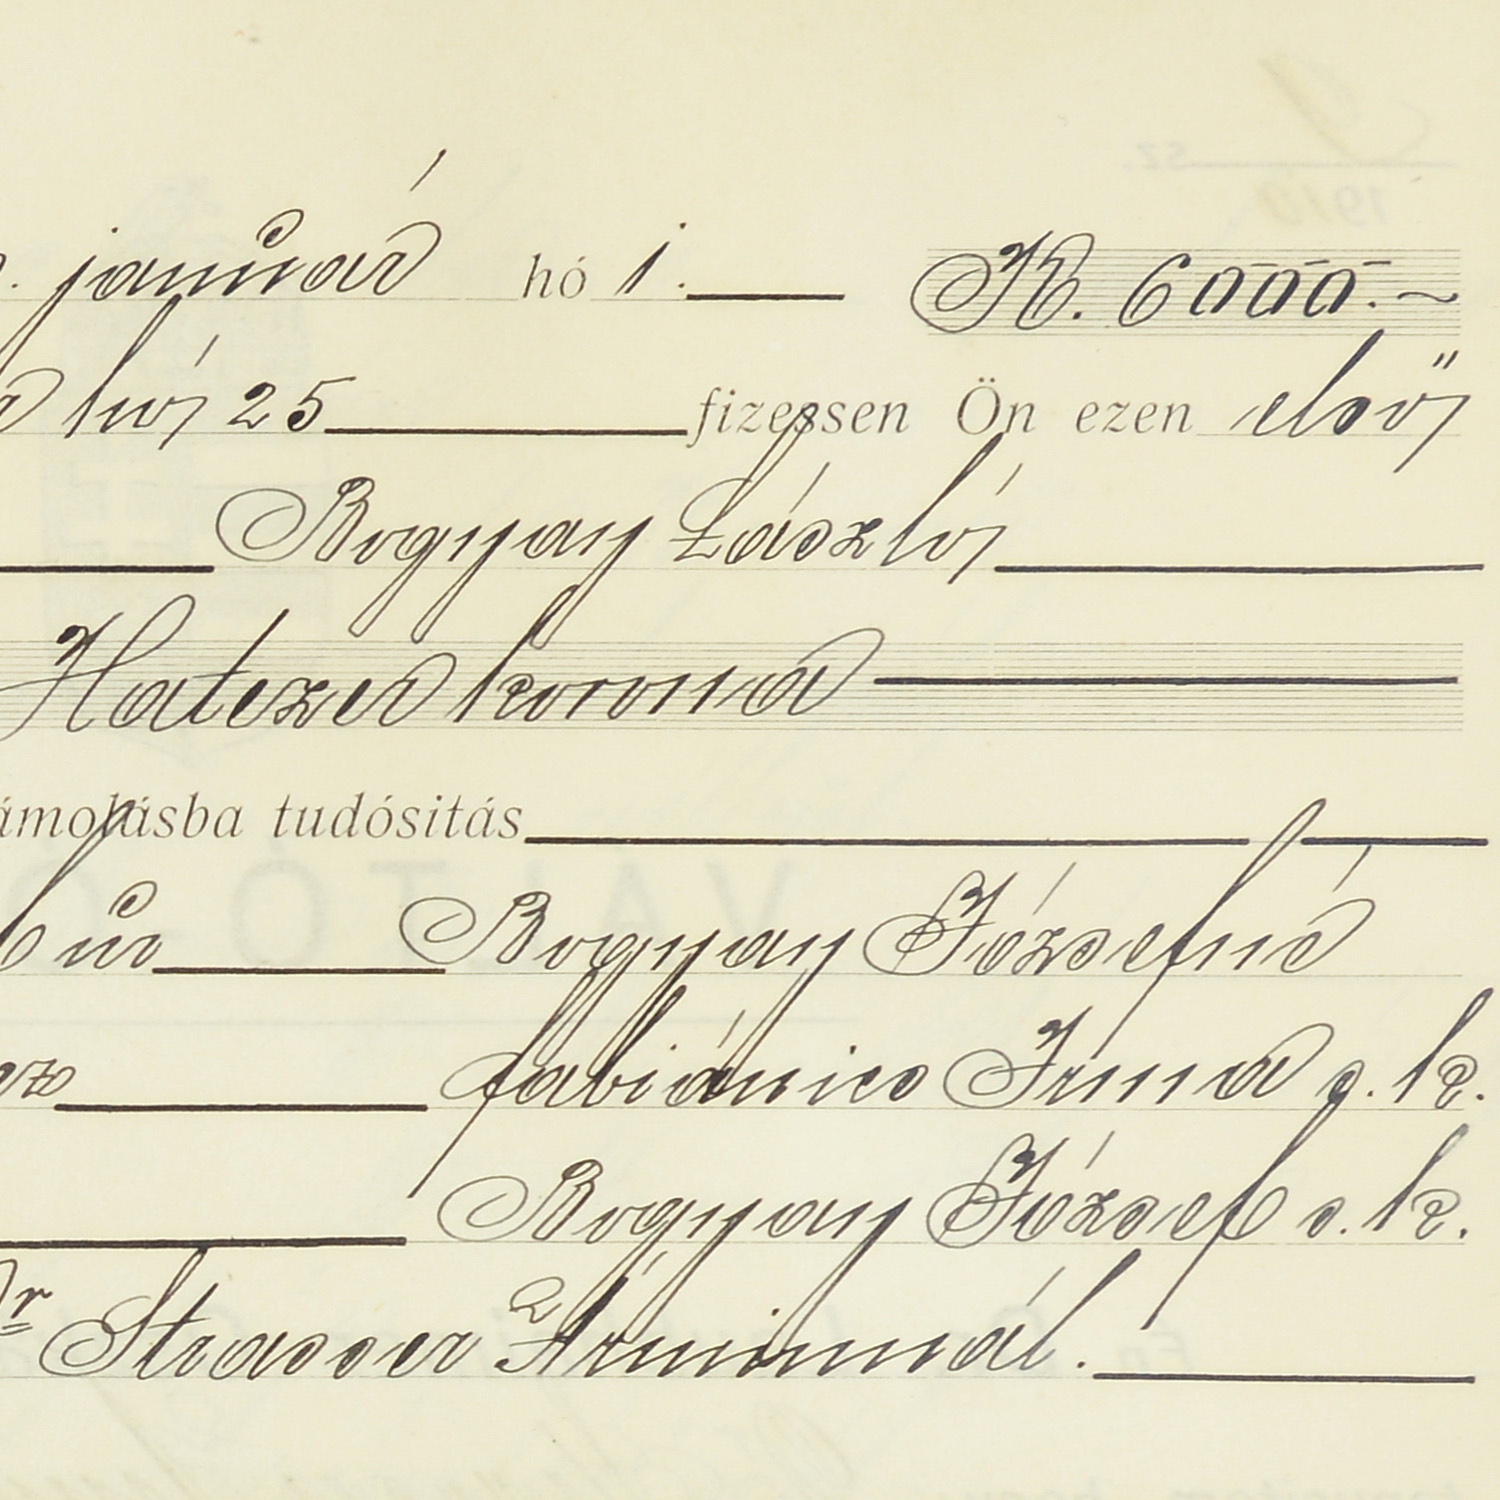 január hó 1. K. 6000.~
hó 25 fizessen Ön ezen első
Bogyay László
Hatezer korona
ámolásba tudósitás
úr Bogyay Józsefné
fabiánics Irma s. k.
Bogyay József s. k.
Dr Strasser Árminnál.